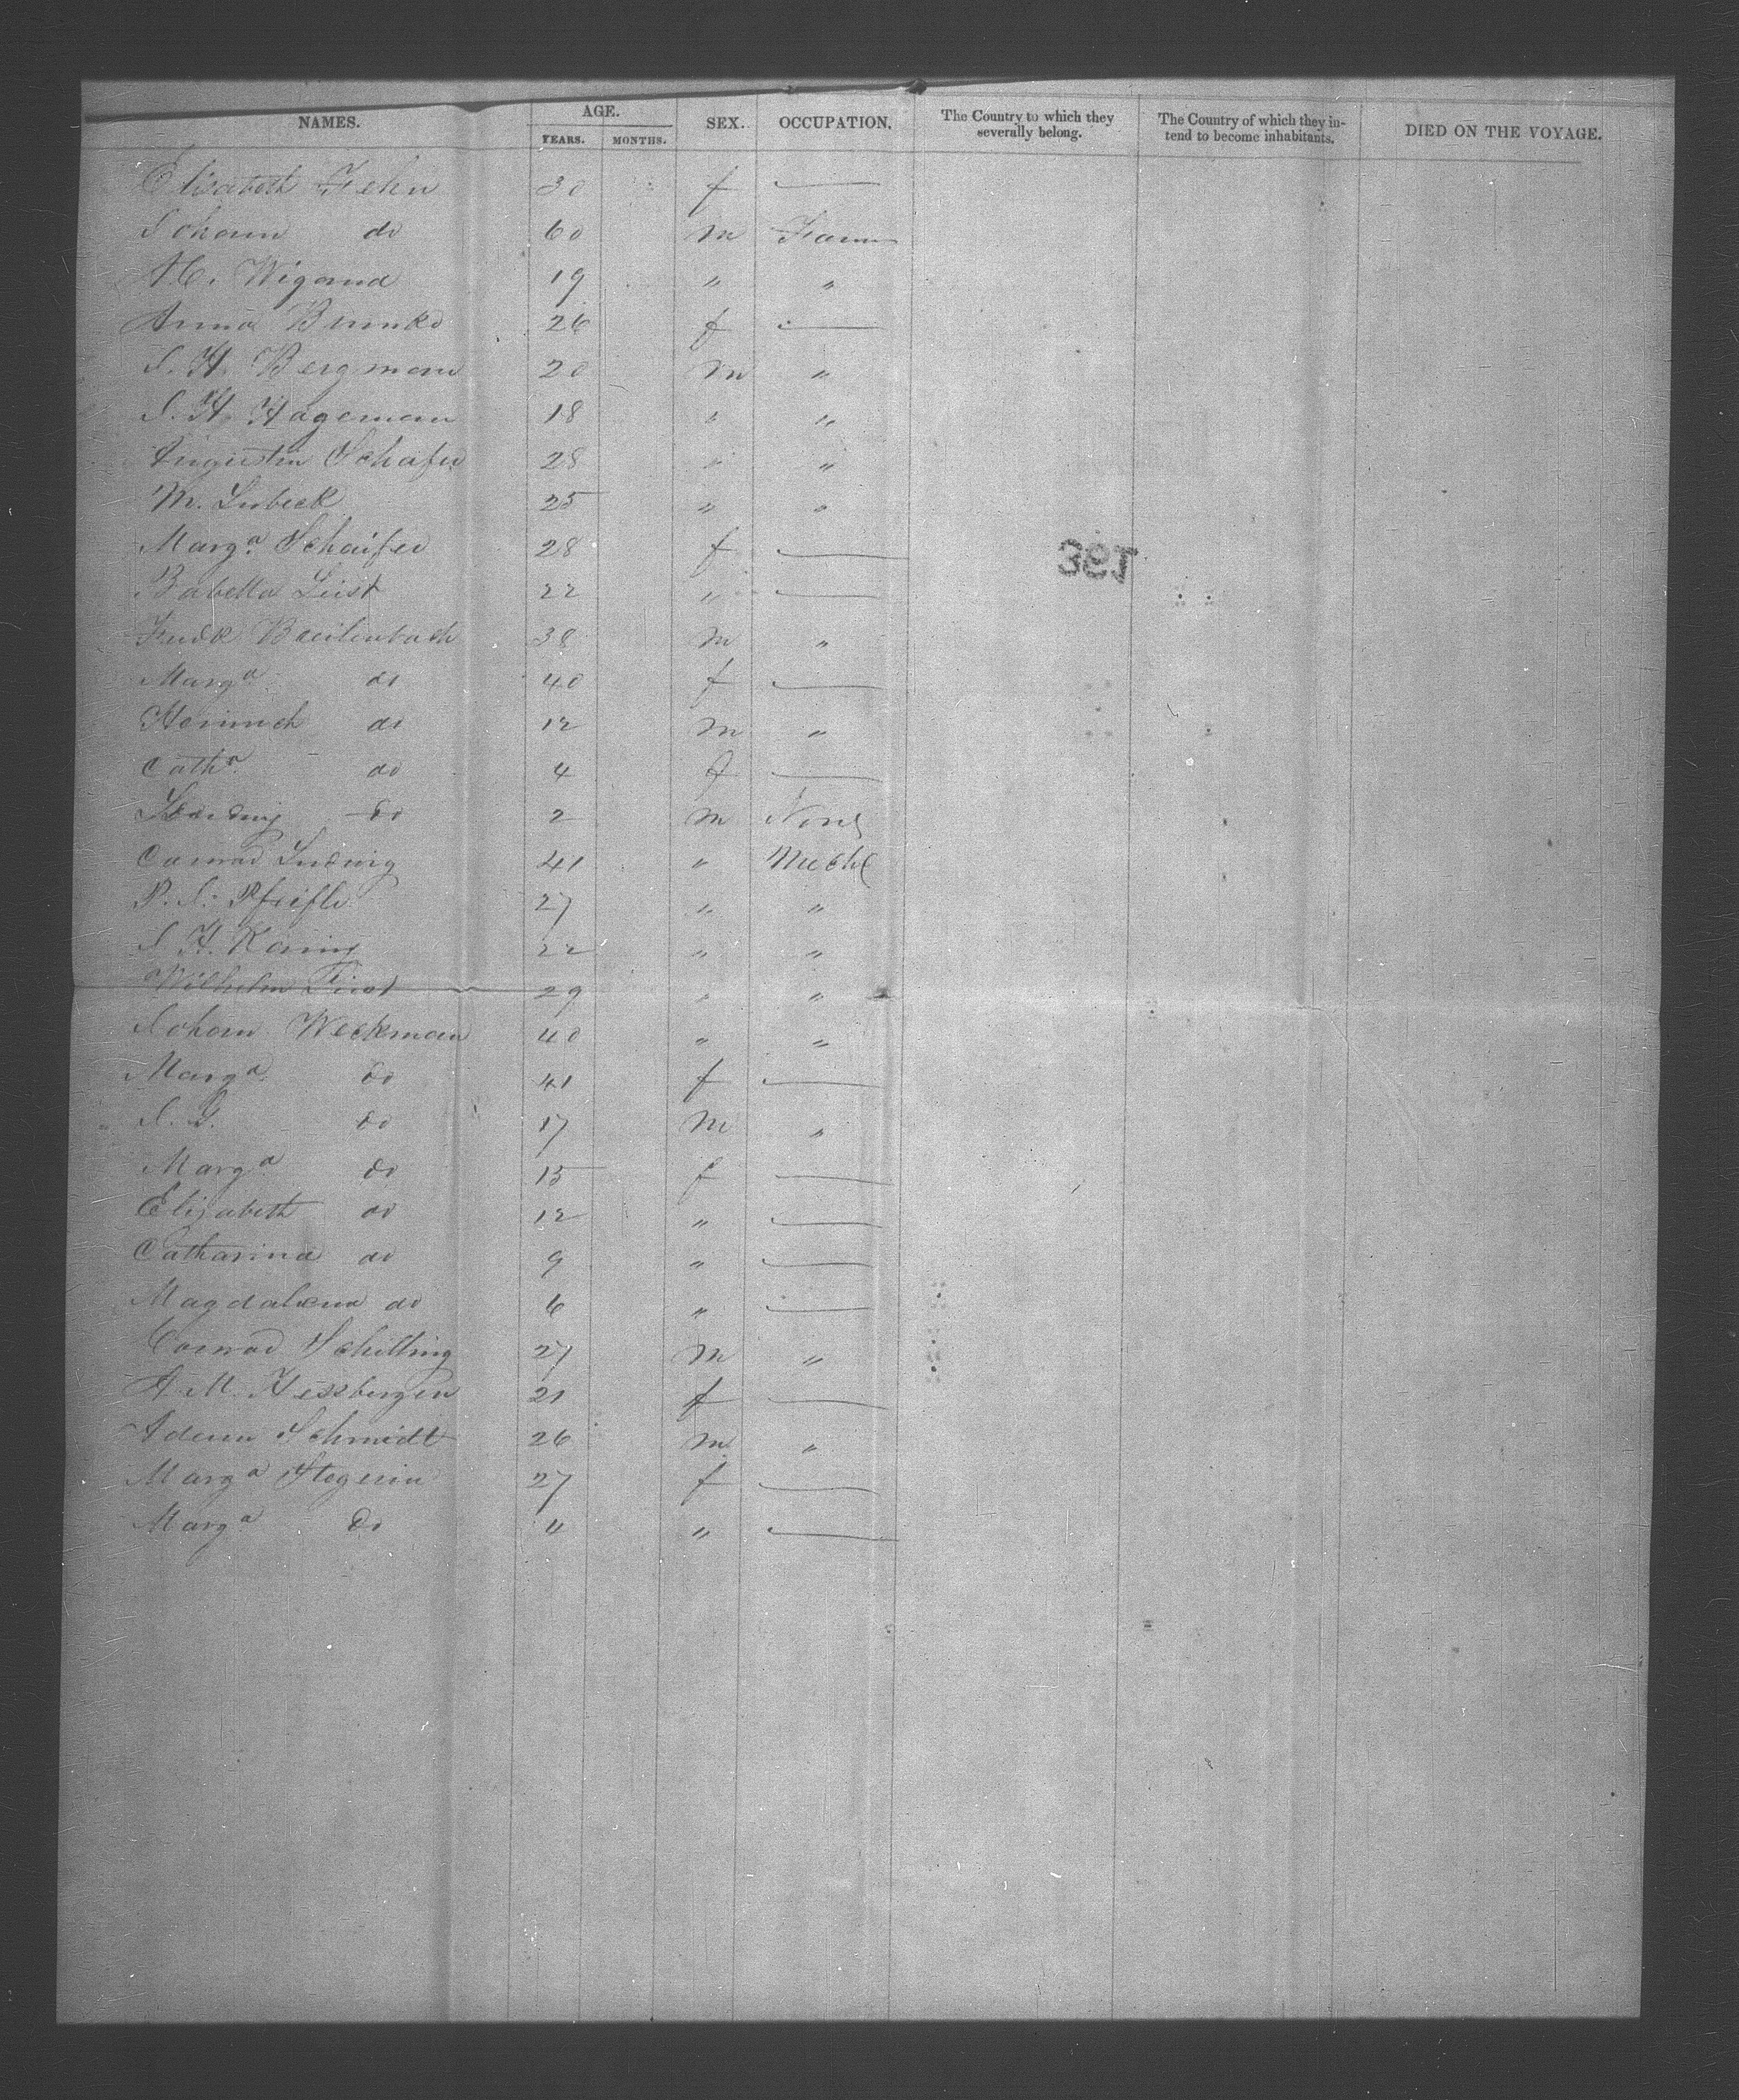 NAMES. AGE. SEX. OCCUPATION. The Country to which they severally belong. The Country of which they intend to become inhabitants. DIED ON THE VOYAGE.
YEARS. MONTHS.
Elisabeth Fehn 30 f —
Johann do 60 m Farmer
Wigand 19 " "
Anna 26 f —
J. H. Bergman 20 m "
J. H. Hageman 18 " "
Augustin Schafer 28 " "
M. Lubeck 25 " "
Marga Schaifer 28 f —
Babetta List 22 " —
Fredk Breitenbach 38 m "
Marga do 40 f —
Heinrich do 12 m "
Catha do 4 f —
do 2 m None
Conrad Ludwig 41 " Mechc
P. J. Pfeifle 27 " "
J. H. Koning 22 " "
Wilhelm 29 " "
Johann Weckman 40 " "
Marga do 41 f —
J. G. do 17 m "
Marga do 15 f —
Elizabeth do 12 " —
Catharina do 9 " —
Magdalena do 6 " —
Conrad Schilling 27 m "
A. M. Hessbergen 21 f —
Adam Schmidt 26 m "
Marga Stegerin 27 f —
Marga do 4 " —